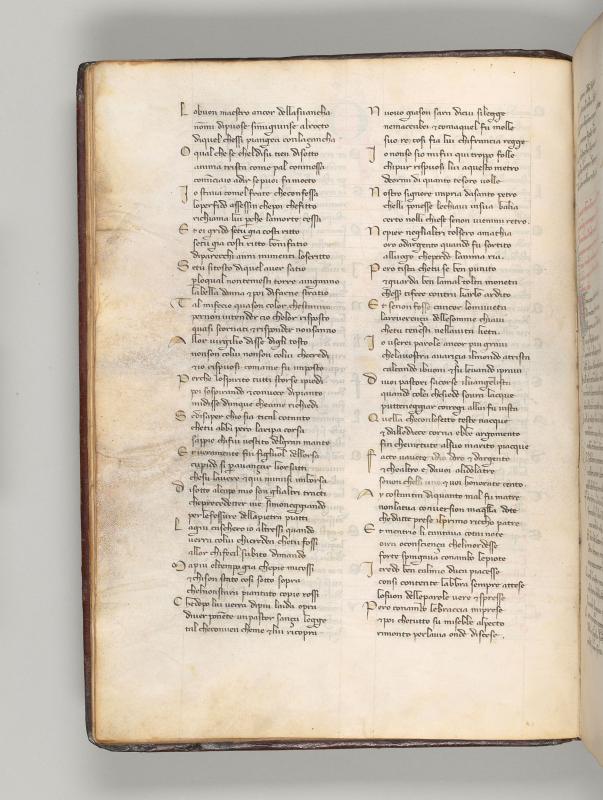 L obuon maestro ancor dellasuancha
nommi dipuose simigiunse alrocto
diquel chessi piangea conlaçancha
O qual che se cheldisu tien disotto
anima trista come pal commessa
comīciaio adir sepuoi fa motto
I o stava comel frate checonfessa
loperfido assessin chepoi chefitto
richiama lui pche lamorte cessa
E t ei grido setu gia costi ritto
setu gia costi ritto bonifatio
diparecchi anni mimenti loscritto
S etu sitosto diquel aver satio
ploqual nontemesti torre aīnganno
labella donna & poi difarne stratio
T al mifecio quason color chestanno
pernon intender cio chelor risposto
quasi scornati & risponder nonsanno
A llor virgilio disse digli tosto
nonson colui nonson colui checredi
& io rispuosi comame fu imposto
P erche lospirto tutti storse ipiedi
poi sospirando & conuoce dipianto
midisse dunque cheame richiedi
S edisaper chio sia tical cotanto
chetu abbi pero laripa corsa
sappi chafui vestito delgran manto
E t veramente fui figliuol dellorsa
cupido si pavançar liorsatti
chesu lavere & qui mimisi imborsa
D isotto alcapo mio son glialtri tracti
cheprecedetter me simoneggiando
perlefessure dellapietra piatti
L agiu caschero io altressi quando
verra colui chicredea chetu fossi
allor chifecil subito dimando
M apiu eltempo gia chepie micossi
& chison stato cosi sotto sopra
chelnonstara piantato copie rossi
C hedopo lui verra dipiu laida opra
diver ponēte unpastor sança legge
tal checonvien chelui & me ricopra
N uovo giason sara dicui silegge
nemaccabei & comaquel fu molle
suo re cosi fia lui chifrancia regge
I o nonso sio mifui qui troppo folle
chipur rispuosi lui aquesto metro
deormi di quanto tesoro volle
N ostro signore inpria dasanto petro
chelli ponesse lechiavi insua balia
certo nolli chiese senon viemmi retro
N epier neglialtri tolsero amathia
oro odargento quando fu sortito
alluogo cheperde lanima ria
P ero tista chetu se ben punito
& guarda ben lamal tolta moneta
chessi tifece contra karlo ardito
E t senon fosse cancor lomivieta
lareverença dellesomme chiavi
chetu tenesti nellavita lieta
I o userei parole ancor piu gravi
chelavostra avaritia ilmondo atrista
calcando ibuoni & su levando ipravi
D i voi pastori sacorse ilvangelista
quando colei chesiede sovra lacque
puttaneggiar coregi allui fu vista
Q uella checonlesette teste nacque
& dalledieci corna ebbe argomento
fin chevirtute alsuo marito piacque
F acto vavete idio doro & dargento
& chealtro e davoi alidolatre
senon chelli uno & voi honorate cento
A y costantin diquanto mal fu matre
nonlatua conversion maqlla dote
chedate prese ilprimo riccho patre
E t mentrio li cantava cotai note
oira oconsciença chelmordesse
forte spingava conambo lepiote
I credo ben calmio duca piacesse
consi contente labbra sempre attese
losuon delleparole vere & spresse
P ero conambo lebraccia miprese
& poi chetutto su misebbe alpecto
rimonto perlavia onde discese.